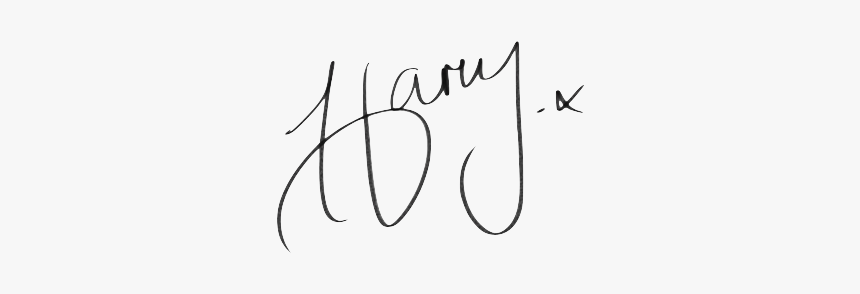 Harry .x